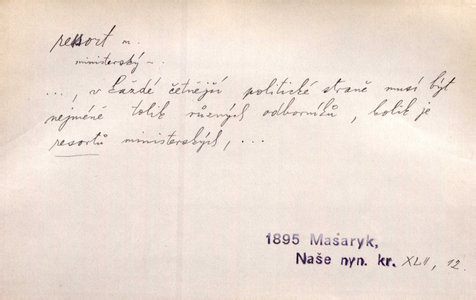 resort m.
ministerský ~.
..., v každé četnější politické straně musí být
nejméně tolik různých odborníků, kolik je
resortů ministerských, ...
1895 Masaryk,
Naše nyn. kr. XLII, 12.